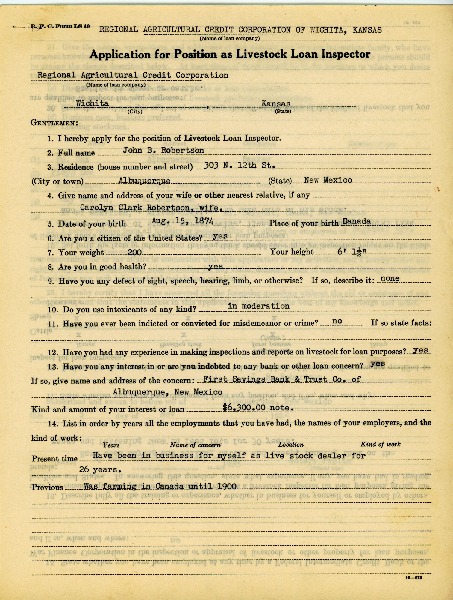 R. F. C. Form L& 49
REGIONAL AGRICULTURAL CREDIT CORPORATION OF WICHITA, KANSAS
(Name of loan company)
Application for Position as Livestock Loan Inspector
Regional Agricultural Credit Corporation
(Name of loan company)
Wichita Kansas
(City) (State)
GENTLEMEN:
1. I hereby apply for the position of Livestock Loan Inspector.
2. Full name John B. Robertson
3. Residence (house number and street) 303 N. 12th St.
(City or town) Albuquerque (State) New Mexico
4. Give name and address of your wife or other nearest relative, if any
Carolyn Clark Robertson, wife.
5. Date of your birth Aug. 15, 1874 Place of your birth Canada
6. Are you a citizen of the United States? yes
7. Your weight 200 Your height 6' 1½"
8. Are you in good health? yes
9. Have you any defect of sight, speech, hearing, limb, or otherwise? If so, describe it: none
10. Do you use intoxicants of any kind? in moderation
11. Have you ever been indicted or convicted for misdemeanor or crime? no If so state facts:
12. Have you had experience in making inspections and reports on livestock for loan purposes? yes
13. Have you any interest in or are you indebted to any bank or other loan concern? yes
If so, give name and address of the concern: First Savings Bank & Trust Co. of
Albuquerque, New Mexico
Kind and amount of your interest or loan $6,300.00 note.
14. List in order by years all the employments that you have had, the names of your employers, and the
kind of work:
Years Name of concern Location Kind of work
Present time Have been in business for myself as live stock dealer for
26 years.
Previous Was farming in Canada until 1900